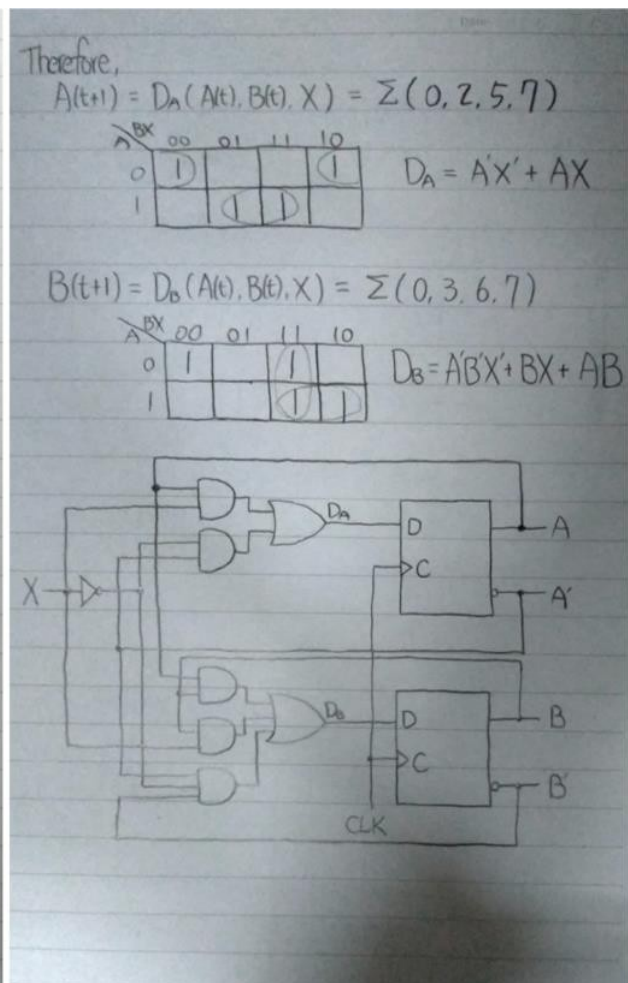 Therefore,
A(t+1) = DA (A(t), B(t), X) = Σ(0, 2, 5, 7)
A BX 00 01 11 10
0 1 1
1 1 1
DA = A'X' + AX
B(t+1) = DB (A(t), B(t), X) = Σ(0, 3, 6, 7)
A BX 00 01 11 10
0 1 1
1 1 1
DB = A'B'X' + BX + AB
DA
D
A
C
X
A'
DB
D
B
C
B'
CLK